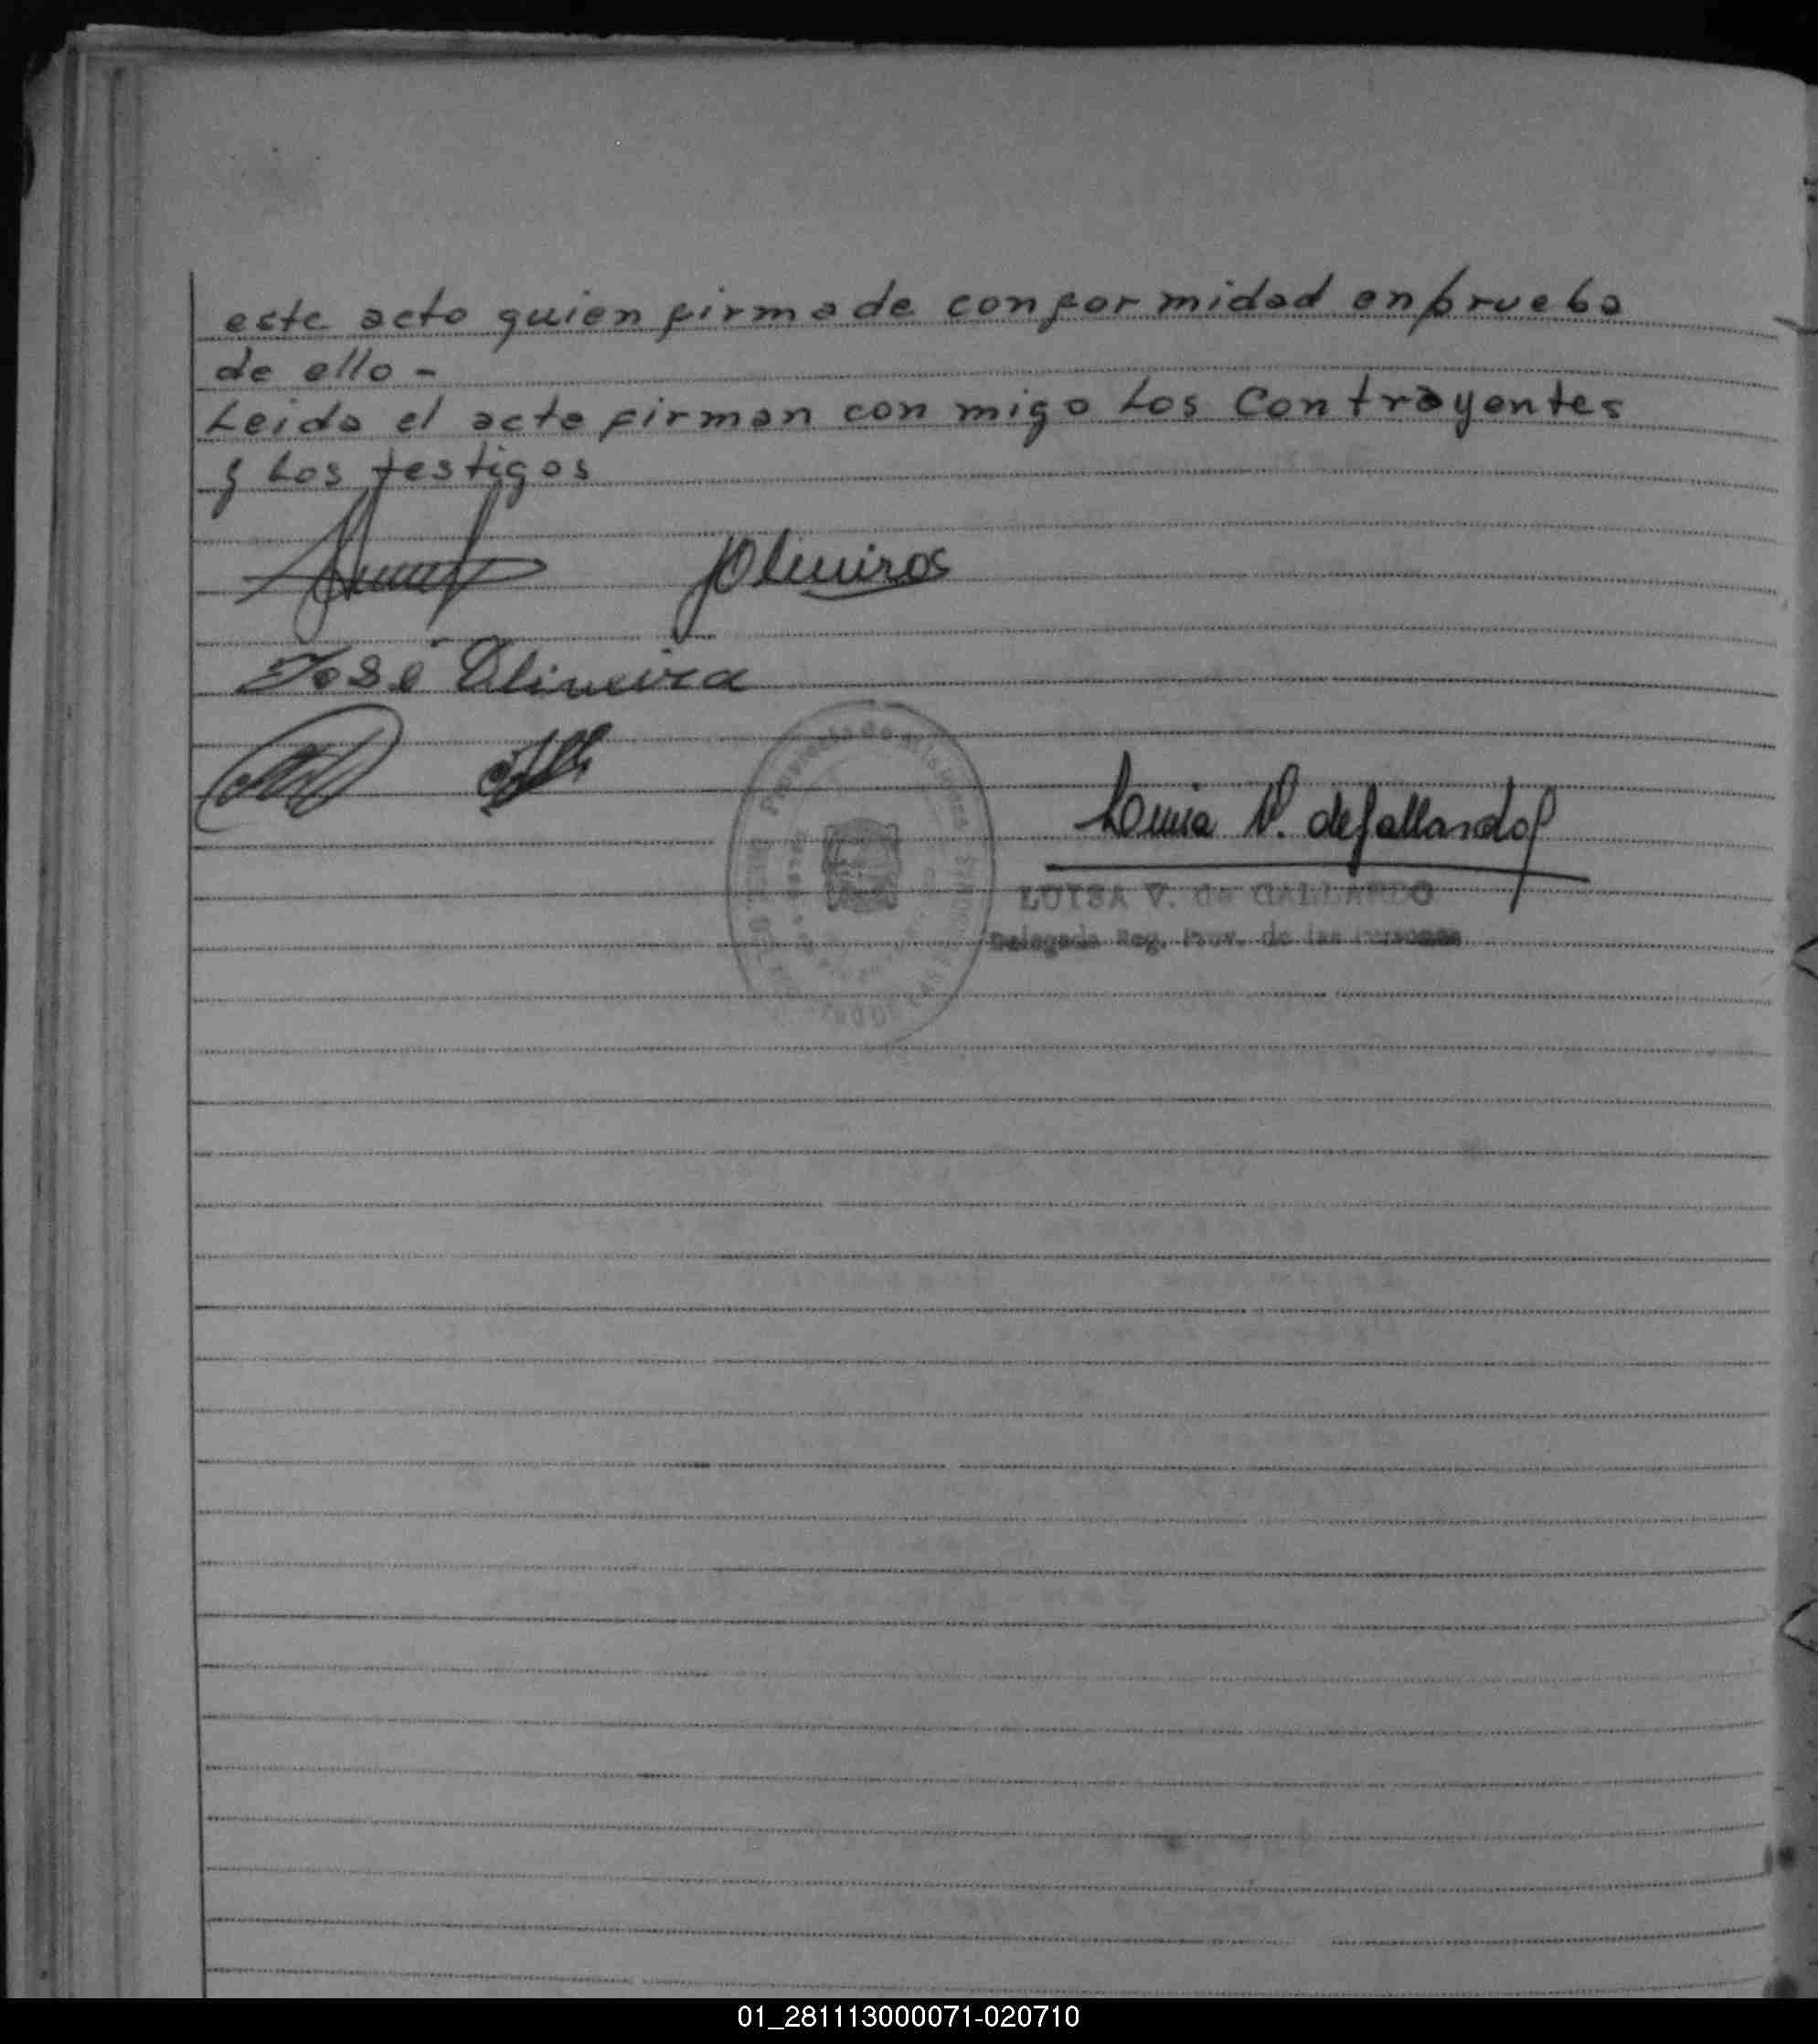 este acto quien firma de conformidad en prueba
de ello -
Leida el acta firman con migo Los Contrayentes
y Los testigos
José Oliveira
Luisa V. de Gallardo
Provincia de Misiones
LUISA V. de GALLARDO
Delegada Reg. Prov. de las Personas
01_281113000071-020710